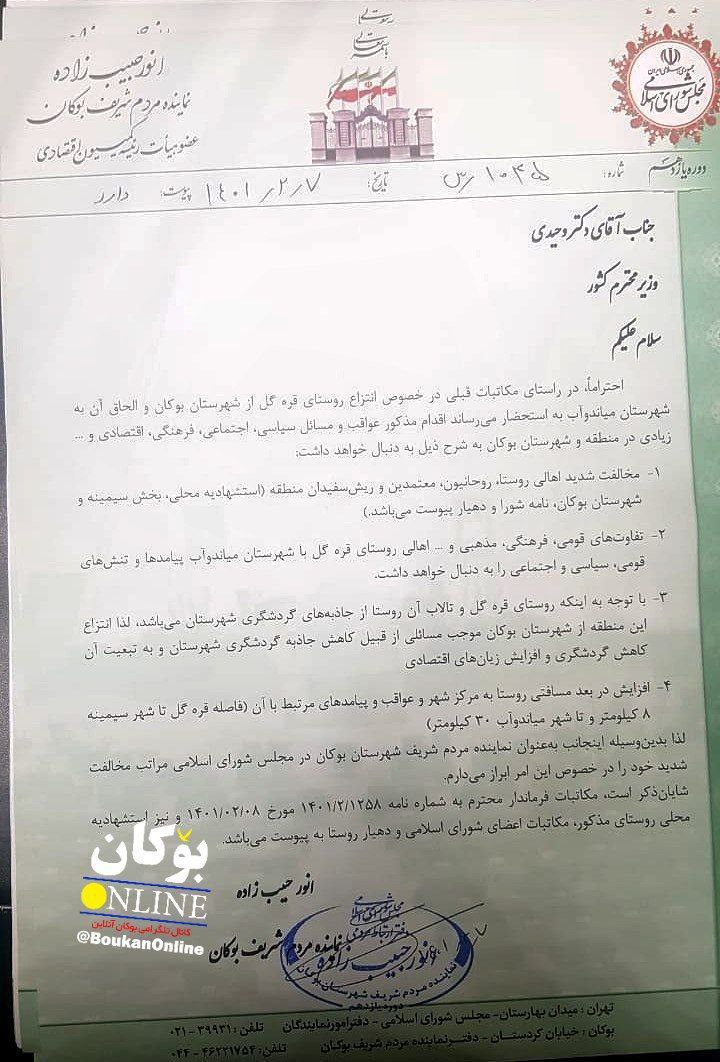 باسمه تعالی
جمهوری اسلامی ایران
مجلس شورای اسلامی
انور حبیب زاده
نماینده مردم شریف بوکان
عضو هیأت رئیسه کمیسیون اقتصادی
دوره یازدهم
شماره: ۱۰۳۵/س
تاریخ: ۱۴۰۱/۲/۷
پیوست: دارد
جناب آقای دکتر وحیدی
وزیر محترم کشور
سلام علیکم
احتراماً، در راستای مکاتبات قبلی در خصوص انتزاع روستای قره گل از شهرستان بوکان و الحاق آن به
شهرستان میاندوآب به استحضار می‌رساند اقدام مذکور عواقب و مسائل سیاسی، اجتماعی، فرهنگی، اقتصادی و ...
زیادی در منطقه و شهرستان بوکان به شرح ذیل به دنبال خواهد داشت:
۱- مخالفت شدید اهالی روستا، روحانیون، معتمدین و ریش‌سفیدان منطقه (استشهادیه محلی، بخش سیمینه و
شهرستان بوکان، نامه شورا و دهیار پیوست می‌باشد.)
۲- تفاوت‌های قومی، فرهنگی، مذهبی و ... اهالی روستای قره گل با شهرستان میاندوآب پیامدها و تنش‌های
قومی، سیاسی و اجتماعی را به دنبال خواهد داشت.
۳- با توجه به اینکه روستای قره گل و تالاب آن روستا از جاذبه‌های گردشگری شهرستان می‌باشد، لذا انتزاع
این منطقه از شهرستان بوکان موجب مسائلی از قبیل کاهش جاذبه گردشگری شهرستان و به تبعیت آن
کاهش گردشگری و افزایش زیان‌های اقتصادی
۴- افزایش در بعد مسافتی روستا به مرکز شهر و عواقب و پیامدهای مرتبط با آن (فاصله قره گل تا شهر سیمینه
۸ کیلومتر و تا شهر میاندوآب ۳۰ کیلومتر)
لذا بدین‌وسیله اینجانب به‌عنوان نماینده مردم شریف شهرستان بوکان در مجلس شورای اسلامی مراتب مخالفت
شدید خود را در خصوص این امر ابراز می‌دارم.
شایان‌ذکر است، مکاتبات فرماندار محترم به شماره نامه ۱۴۰۱/۲/۱۲۵۸ مورخ ۱۴۰۱/۰۲/۰۸ و نیز استشهادیه
محلی روستای مذکور، مکاتبات اعضای شورای اسلامی و دهیار روستا به پیوست می‌باشد.
انور حبیب زاده
نماینده مردم شریف بوکان
مجلس شورای اسلامی
دفتر ارتباط مردمی
انور حبیب زاده
نماینده مردم شریف شهرستان بوکان
دوره یازدهم
بۆکان
ONLINE
کانال تلگرامی بوکان آنلاین
@BoukanOnline
تهران : میدان بهارستان- مجلس شورای اسلامی - دفتر امور نمایندگان تلفن : ۳۹۹۳۱ - ۰۲۱
بوکان : خیابان کردستان - دفتر نماینده مردم شریف بوکان تلفن : ۴۶۲۲۱۷۵۴ - ۰۴۴